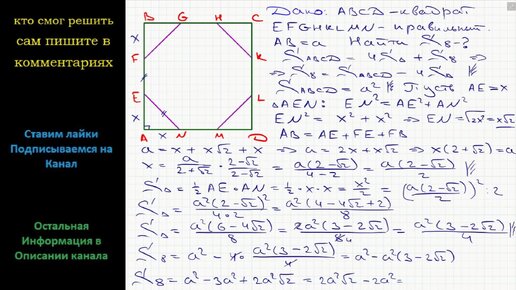 кто смог решить
сам пишите в
комментариях
Ставим лайки
Подписываемся на
Канал
Остальная
Информация в
Описании канала
B G H C
x
F K
E L
x
A x N M D
Дано: ABCD - квадрат
EFGHKLMN - правильн.
AB = a Найти S8 - ?
SABCD = 4SΔ + S8 ⇒
⇒ S8 = SABCD - 4SΔ
SABCD = a² Пусть AE = x
ΔAEN: EN² = AE² + AN²
EN² = x² + x² ⇒ EN = √2x² = x√2
AB = AE + FE + FB
a = x + x√2 + x ⇒ a = 2x + x√2 ⇒ x(2+√2) = a
x = a/(2+√2) · (2-√2)/(2-√2) = a(2-√2)/(4-2) = a(2-√2)/2
SΔ = 1/2 AE · AN = 1/2 · x · x = x²/2 = (a(2-√2)/2)² : 2
SΔ = a²(2-√2)²/(4·2) = a²(4-4√2+2)/8
SΔ = a²(6-4√2)/8 = 2a²(3-2√2)/84 = a²(3-2√2)/4
S8 = a² - 4 · a²(3-2√2)/4 = a² - a²(3-2√2)
S8 = a² - 3a² + 2a²√2 = 2a²√2 - 2a² =